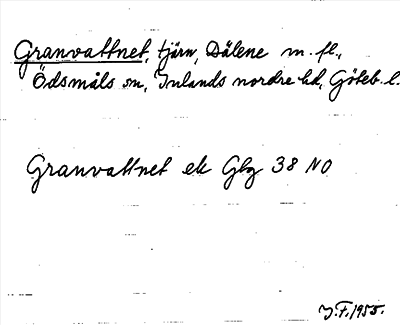 Granvattnet, tjärn, Dälene m. fl.,
Ödsmåls sn, Inlands nordre hd, Göteb. l.
Granvattnet ek Gbg 38 NO
J.F. 1955.